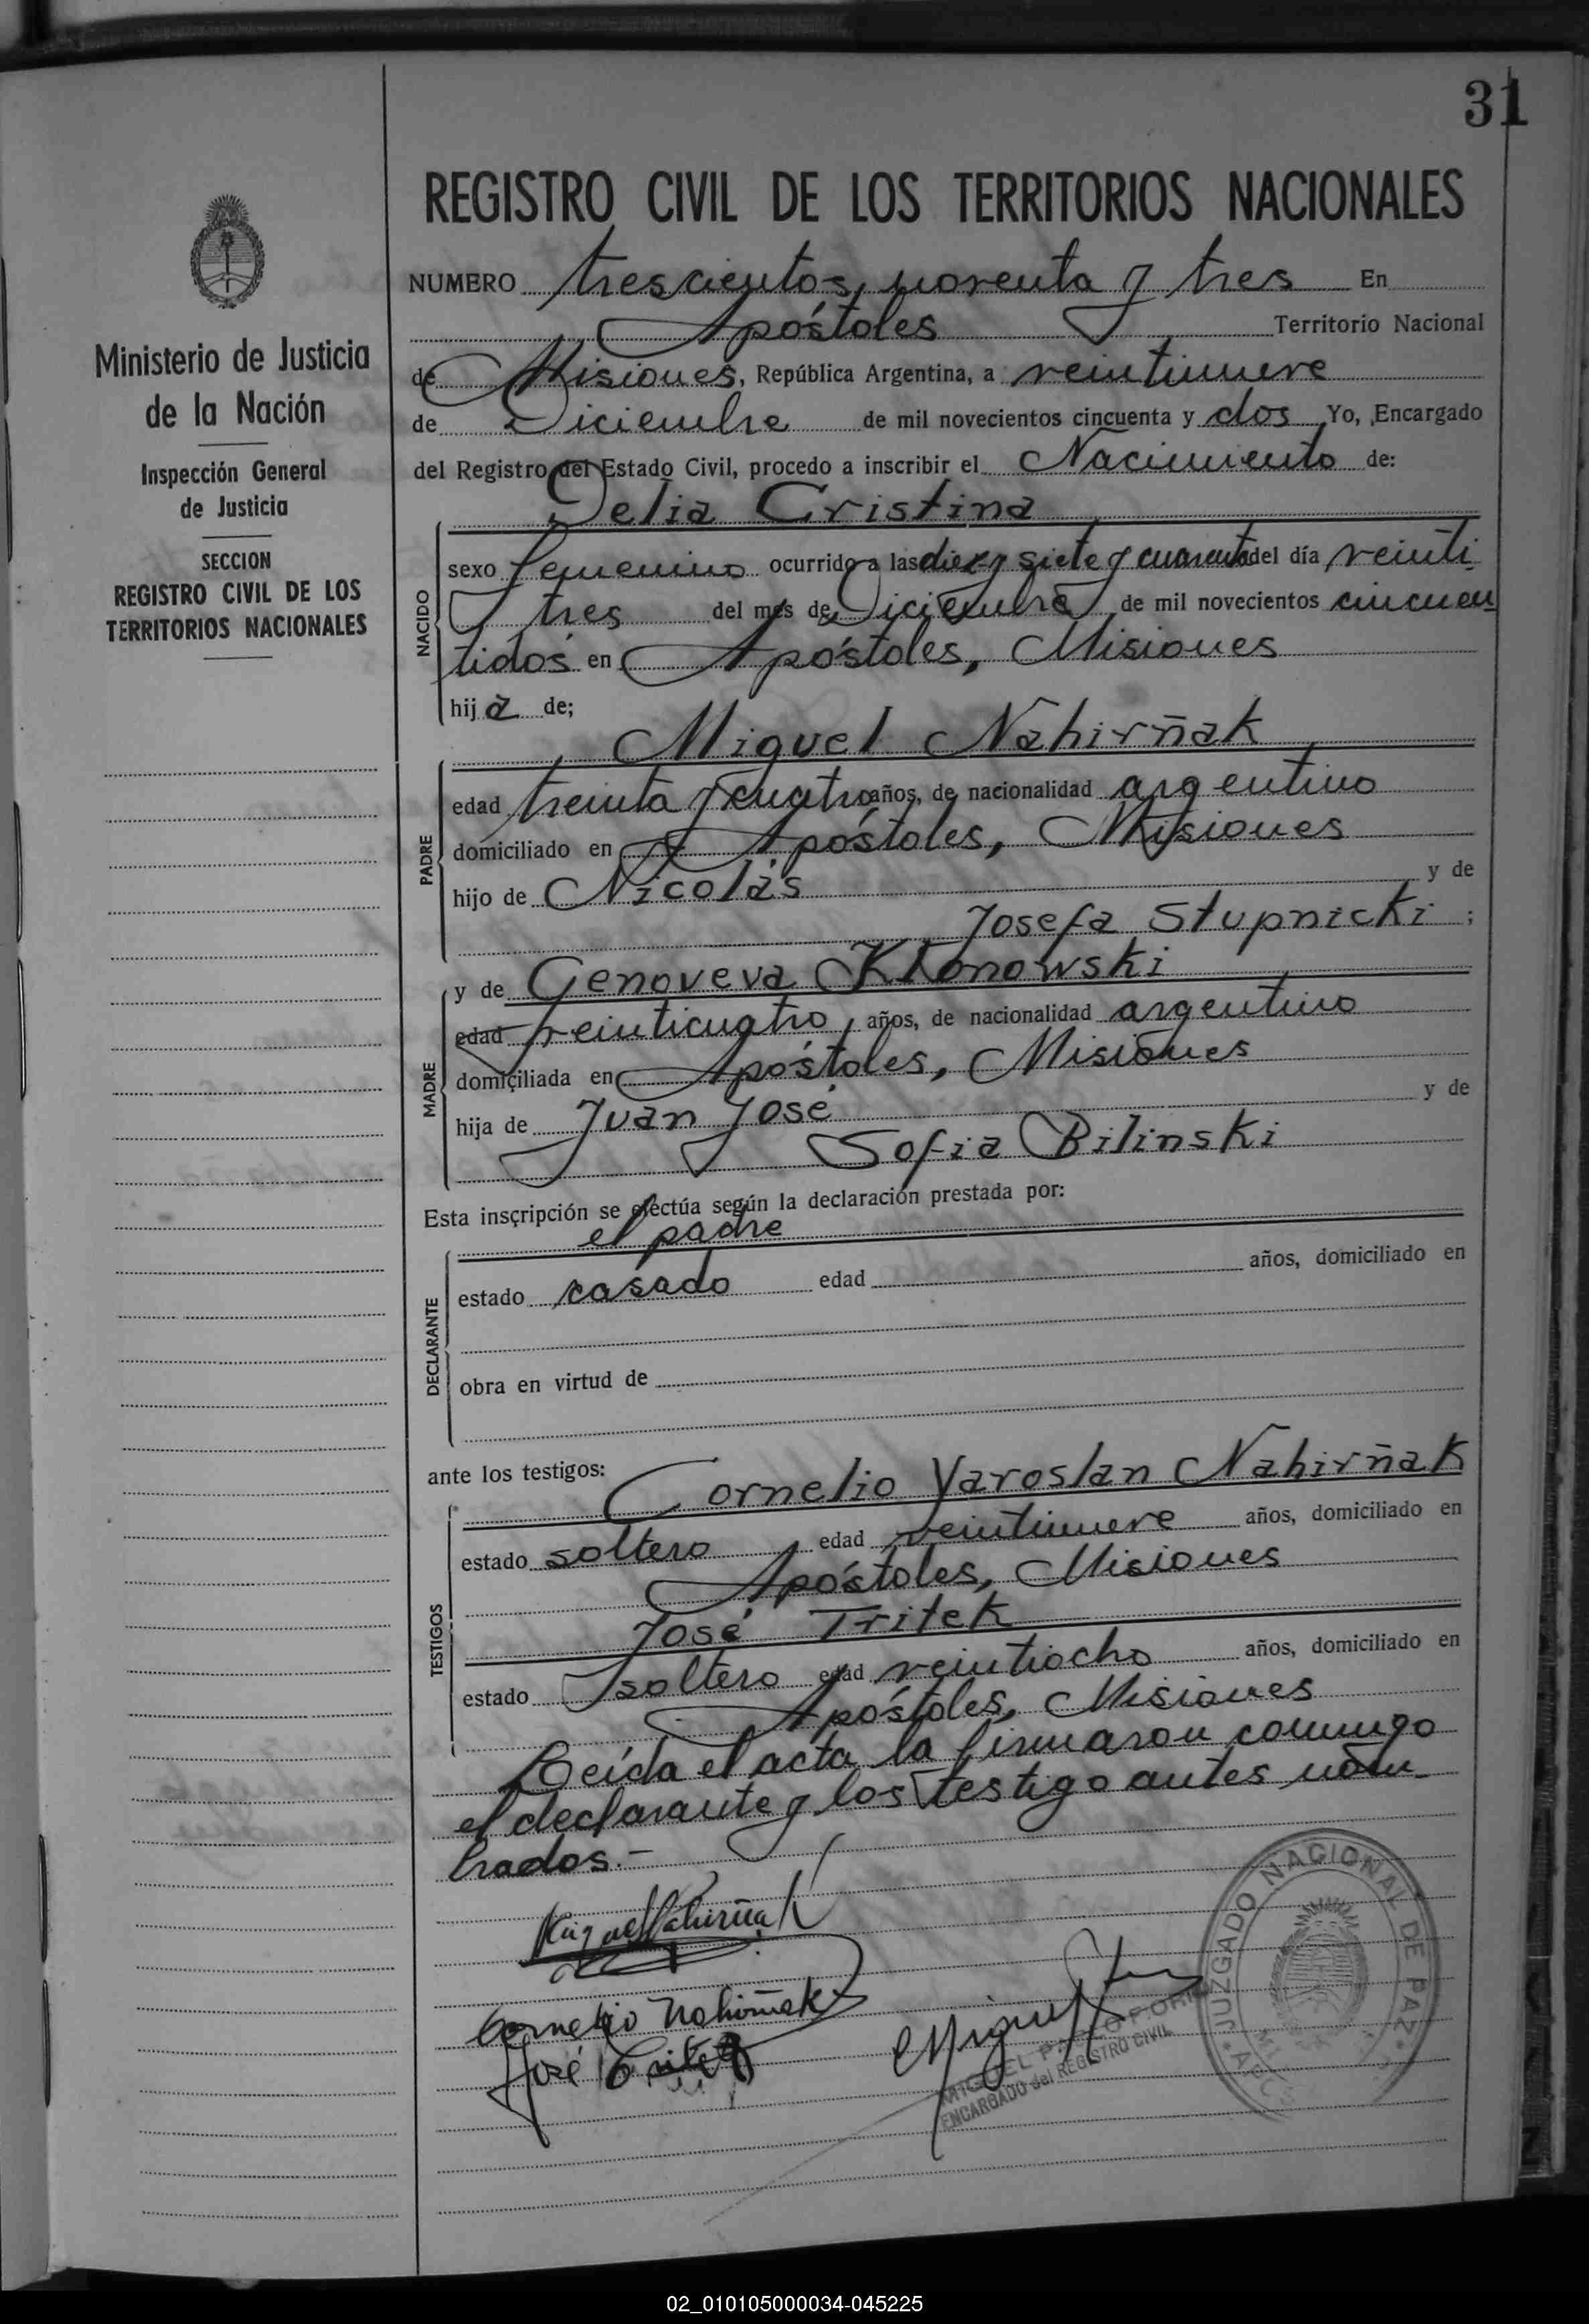 31
REGISTRO CIVIL DE LOS TERRITORIOS NACIONALES
Ministerio de Justicia
de la Nación
Inspección General
de Justicia
SECCION
REGISTRO CIVIL DE LOS
TERRITORIOS NACIONALES
NUMERO trescientos noventa y tres En
Apóstoles Territorio Nacional
de Misiones, República Argentina, a veintinueve
de Diciembre de mil novecientos cincuenta y dos Yo, Encargado
del Registro del Estado Civil, procedo a inscribir el Nacimiento de:
Delia Cristina
NACIDO
sexo femenino ocurrido a las diez y siete y cuarenta del día veinti
tres del mes de Diciembre de mil novecientos cincuen
tidós en Apóstoles, Misiones
hija de;
Miguel Nahirñak
PADRE
edad treinta y cuatro años, de nacionalidad argentino
domiciliado en Apóstoles, Misiones
hijo de Nicolás y de
Josefa Stupnicki ;
y de Genoveva Klonowski
MADRE
edad veinticuatro años, de nacionalidad argentino
domiciliada en Apóstoles, Misiones
hija de Juan José y de
Sofia Bilinski
Esta inscripción se efectúa según la declaración prestada por:
el padre
DECLARANTE
estado casado edad años, domiciliado en
obra en virtud de
ante los testigos: Cornelio Yaroslan Nahirñak
TESTIGOS
estado soltero edad veintinueve años, domiciliado en
Apóstoles, Misiones
José Tritek
estado soltero edad veintiocho años, domiciliado en
Apóstoles, Misiones
Leída el acta, la firmaron conmigo
el declarante y los testigo antes nom-
brados.-
Miguel Nahirñak
Cornelio Nahirñak
José Tritek
Miguel
MIGUEL PABLO
ENCARGADO del REGISTRO CIVIL
JUZGADO NACIONAL DE PAZ
02_010105000034-045225